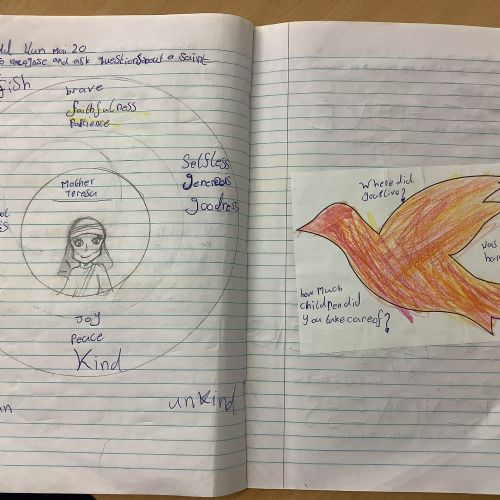 Mai 20
recognise and ask questions about a saint
brave
faithfulness
Patience
Selfless
generous
goodness
Mother
Teresa
Joy
Peace
Kind
unkind
Where did
you live?
how much
children did
you take care of?